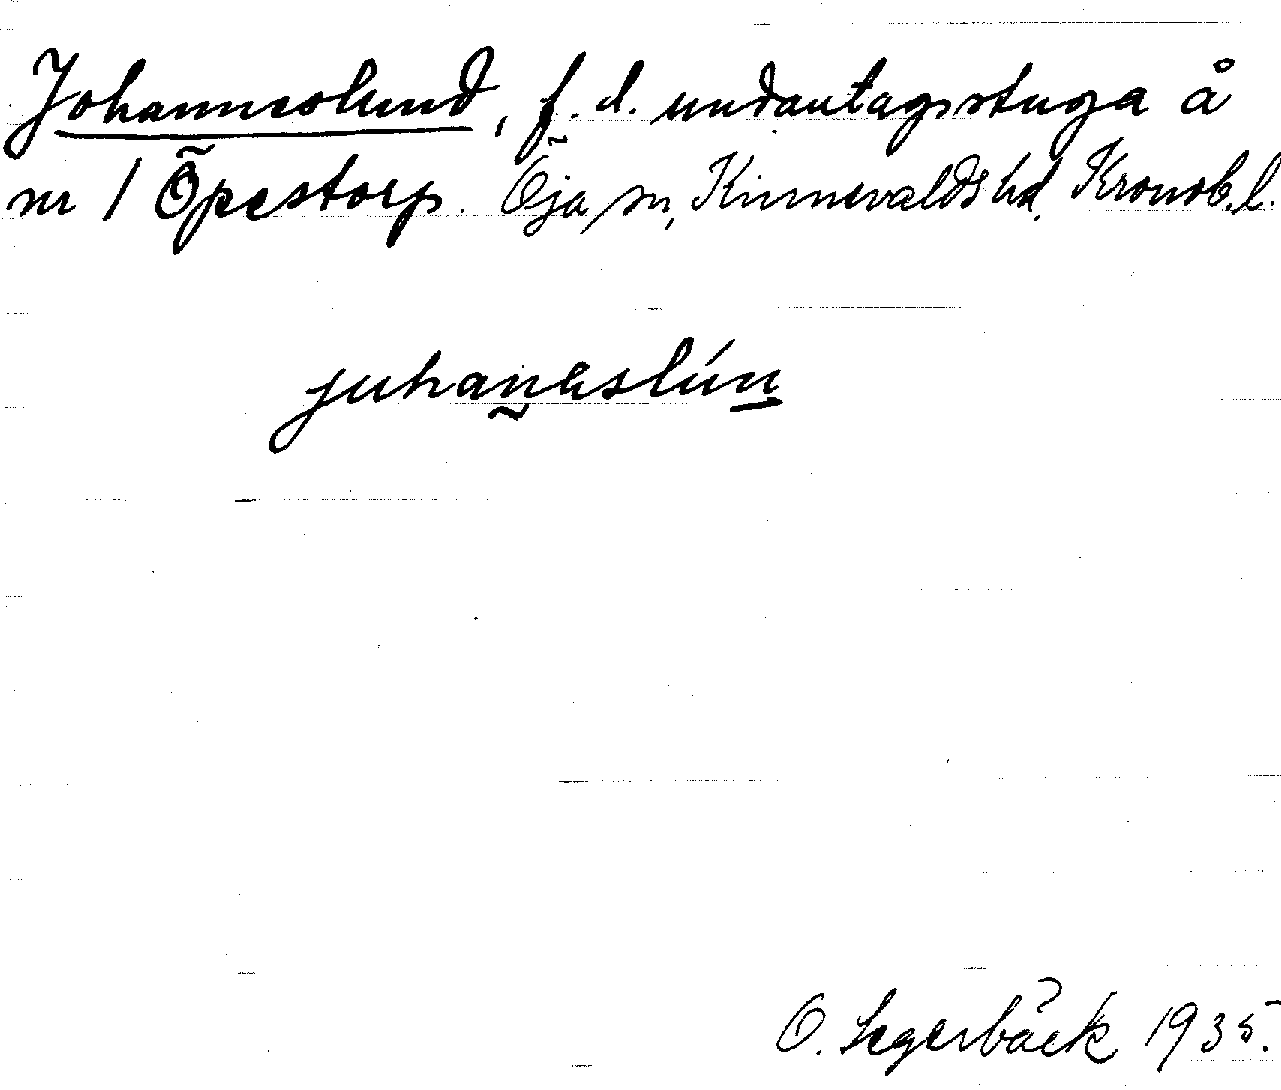 Johanneslund, f. d. undantagsstuga å
nr 1 Öpestorp. Öja sn, Kinnevalds hd, Kronob. l.
juhanəslún
O. Segerbäck 1935.